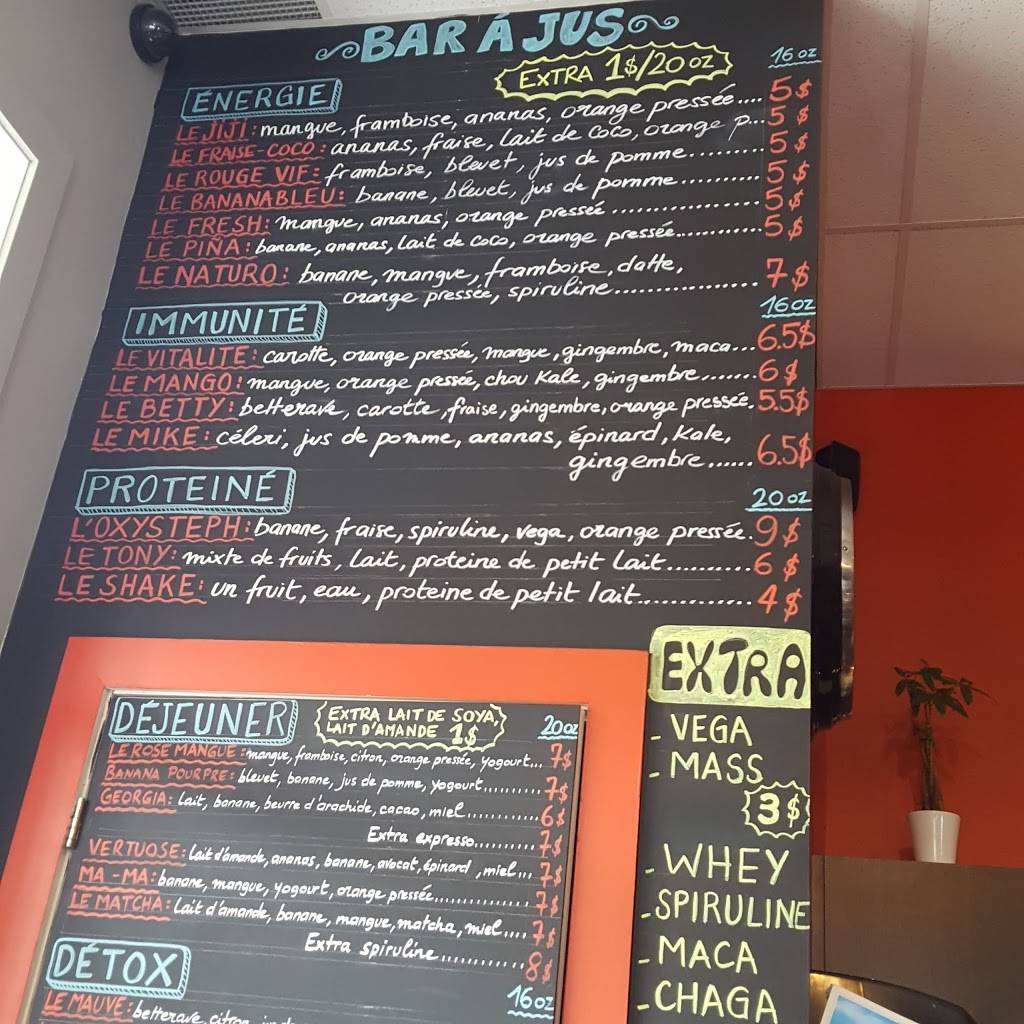 BAR À JUS
EXTRA 1$/20 oz
16 oz
ÉNERGIE
LE JIJI: mangue, framboise, ananas, orange pressée.... 5$
LE FRAISE-COCO: ananas, fraise, lait de coco, orange p...5 $
LE ROUGE VIF: framboise, bleuet, jus de pomme......... 5 $
LE BANANABLEU: banane, bleuet, jus de pomme.......... 5 $
LE FRESH: mangue, ananas, orange pressée ................ 5$
LE PIÑA: banane, ananas, lait de coco, orange pressée............ 5$
LE NATURO: banane, mangue, framboise, datte,
orange pressée, spiruline.................. 7$
16 oz
IMMUNITÉ
LE VITALITÉ: carotte, orange pressée, mangue, gingembre, maca... 6.5$
LE MANGO: mangue, orange pressée, chou Kale, gingembre....... 6 $
LE BETTY: betterave, carotte, fraise, gingembre, orange pressée. 5.5$
LE MIKE: céleri, jus de pomme, ananas, épinard, Kale,
gingembre...... 6.5$
PROTEINÉ
20 oz
L'OXYSTEPH: banane, fraise, spiruline, vega, orange pressée. 9$
LE TONY: mixte de fruits, Lait, proteine de petit lait........... 6 $
LE SHAKE: un fruit, eau, proteine de petit lait.............. 4 $
DÉJEUNER
EXTRA LAIT DE SOYA,
LAIT D'AMANDE 1$
20 oz
LE ROSE MANGUE: mangue, framboise, citron, orange pressée, yogourt... 7$
BANANA POURPRE: bleuet, banane, jus de pomme, yogourt.......... 7$
GEORGIA: Lait, banane, beurre d'arachide, cacao, miel............ 6$
Extra expresso.......... 7$
VERTUOSE: Lait d'amande, ananas, banane, avocat, épinard, miel... 7$
MA-MA: banane, mangue, yogourt, orange pressée.............. 7$
LE MATCHA: Lait d'amande, banane, mangue, matcha, miel.... 7$
Extra spiruline............ 8$
DÉTOX
16 oz
LE MAUVE: betterave, citron,
EXTRA
- VEGA
- MASS
3$
- WHEY
- SPIRULINE
- MACA
- CHAGA